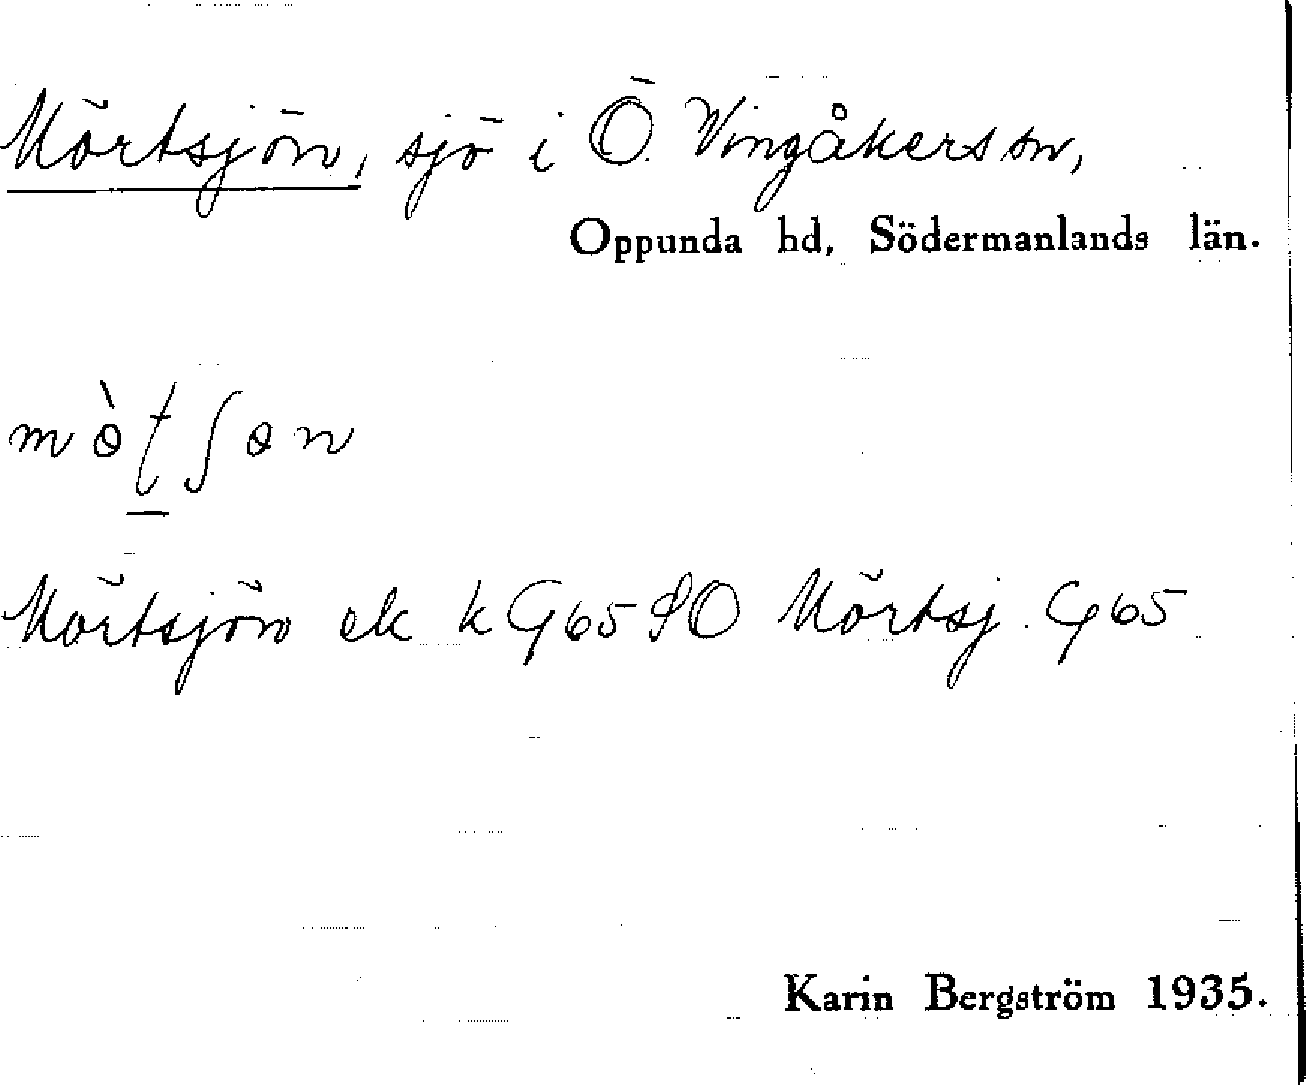 Mörtsjön, sjö i Ö. Vingåkers sn,
Oppunda hd, Södermanlands län.
Mörtsjön ek k G65 SO Mörtsj. G65
Karin Bergström 1935.